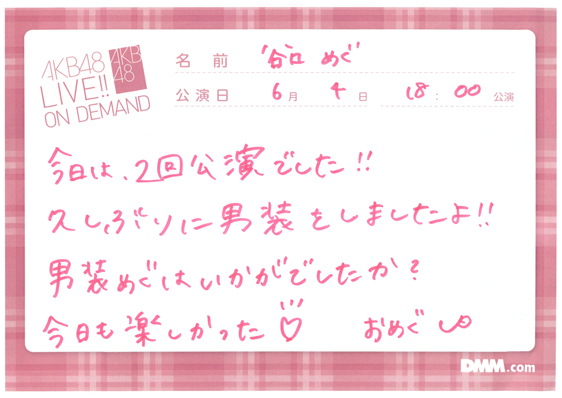 AKB48
LIVE!!
ON DEMAND
AKB
48
名前 谷口 めぐ
公演日 6月 4日 18:00 公演
今日は、2回公演でした!!
久しぶりに男装をしましたよ!!
男装めぐはいかがでしたか?
今日も楽しかった♡ おめぐ
DMM.com